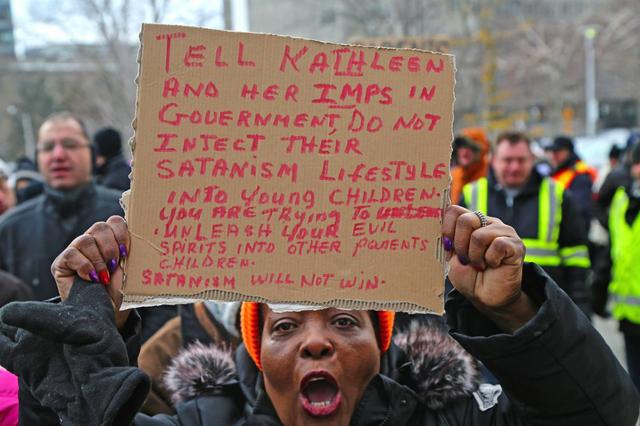 TELL KATHLEEN
AND HER IMPS IN
GOVERNMENT, DO NOT
INJECT THEIR
SATANISM LIFESTYLE
INTO YOUNG CHILDREN.
YOU ARE TRYING TO
UNLEASH YOUR EVIL
SPIRITS INTO OTHER PARENTS
CHILDREN.
SATANISM WILL NOT WIN.